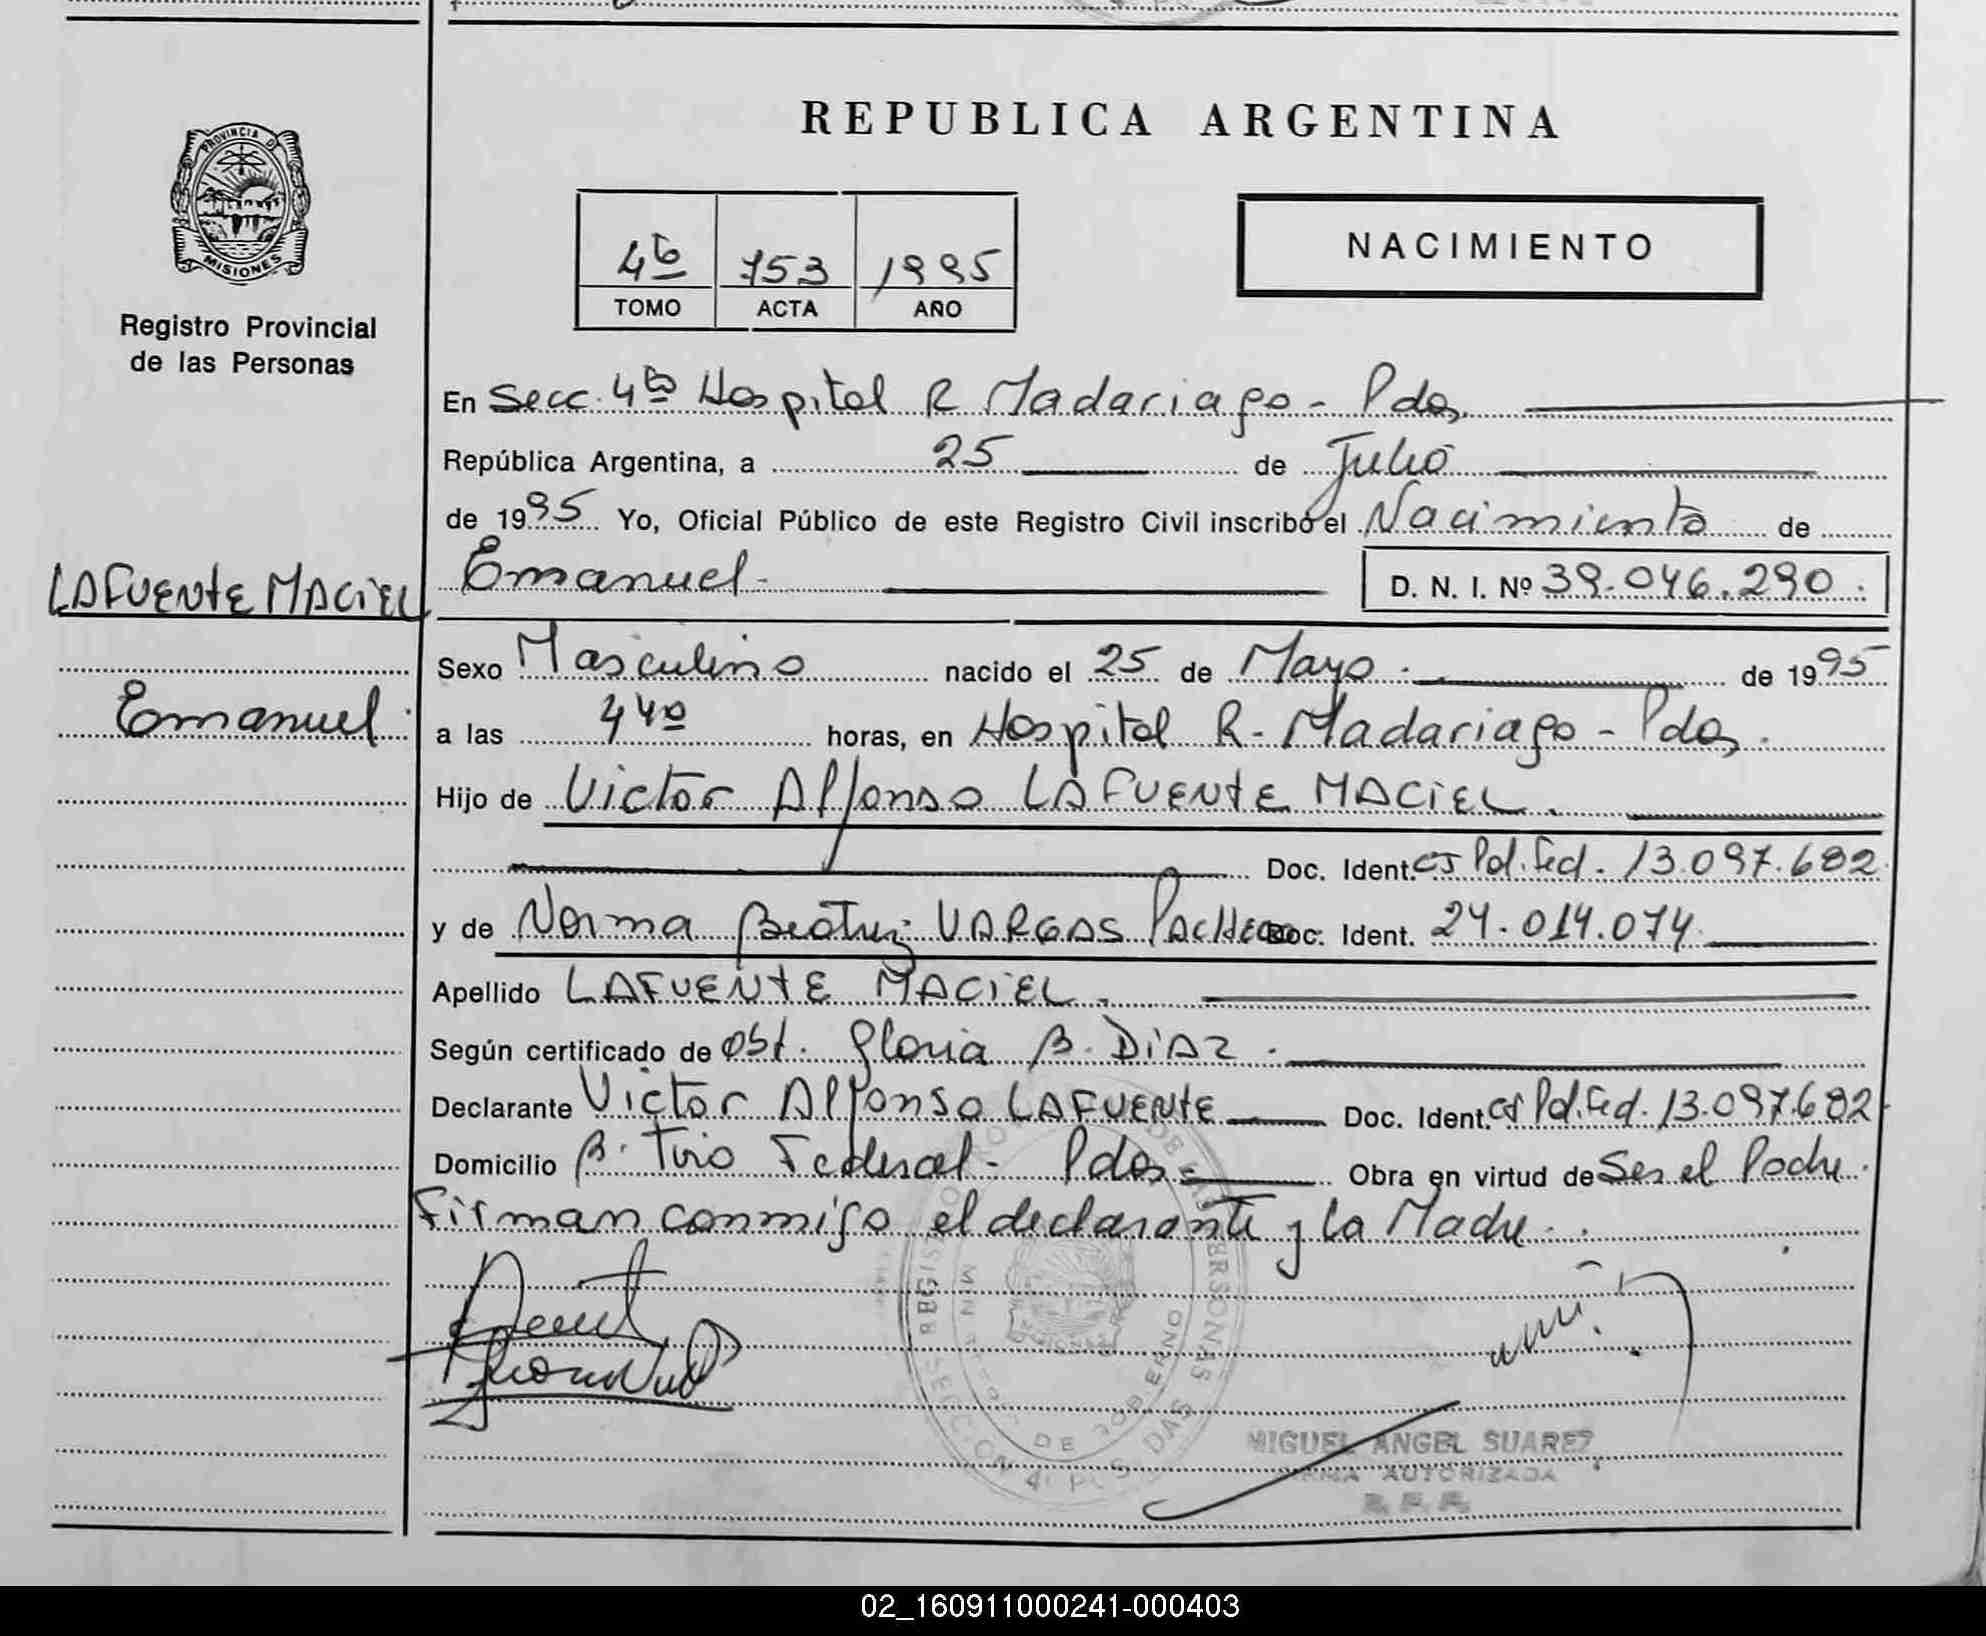 REPUBLICA ARGENTINA
PROVINCIA DE
MISIONES
Registro Provincial
de las Personas
NACIMIENTO
4to 753 1995
TOMO ACTA AÑO
En Secc. 4ta Hospital R Madariaga - Pdas
República Argentina, a 25 de Julio
de 1995 Yo, Oficial Público de este Registro Civil inscribo el Nacimiento de
LAFUENTE MACIEL
Emanuel D. N. I. Nº 39.046.290
Sexo Masculino nacido el 25 de Mayo de 1995
Emanuel
a las 440 horas, en Hospital R. Madariaga - Pdas.
Hijo de Victor Alfonso LAFUENTE MACIEL.
Doc. Ident. CI Pol. Fed. 13.097.682
y de Norma Beatriz VARGAS PACHECO Doc. Ident. 24.014.074
Apellido LAFUENTE MACIEL.
Según certificado de Obst. Gloria B. DIAZ.
Declarante Victor Alfonso LAFUENTE Doc. Ident. CI Pol. Fed. 13.097.682
Domicilio B. Tiro Federal - Pdas Obra en virtud de Ser el Padre.
Firman conmigo el declarante y la Madre.
MIGUEL ANGEL SUAREZ
FIRMA AUTORIZADA
02_160911000241-000403